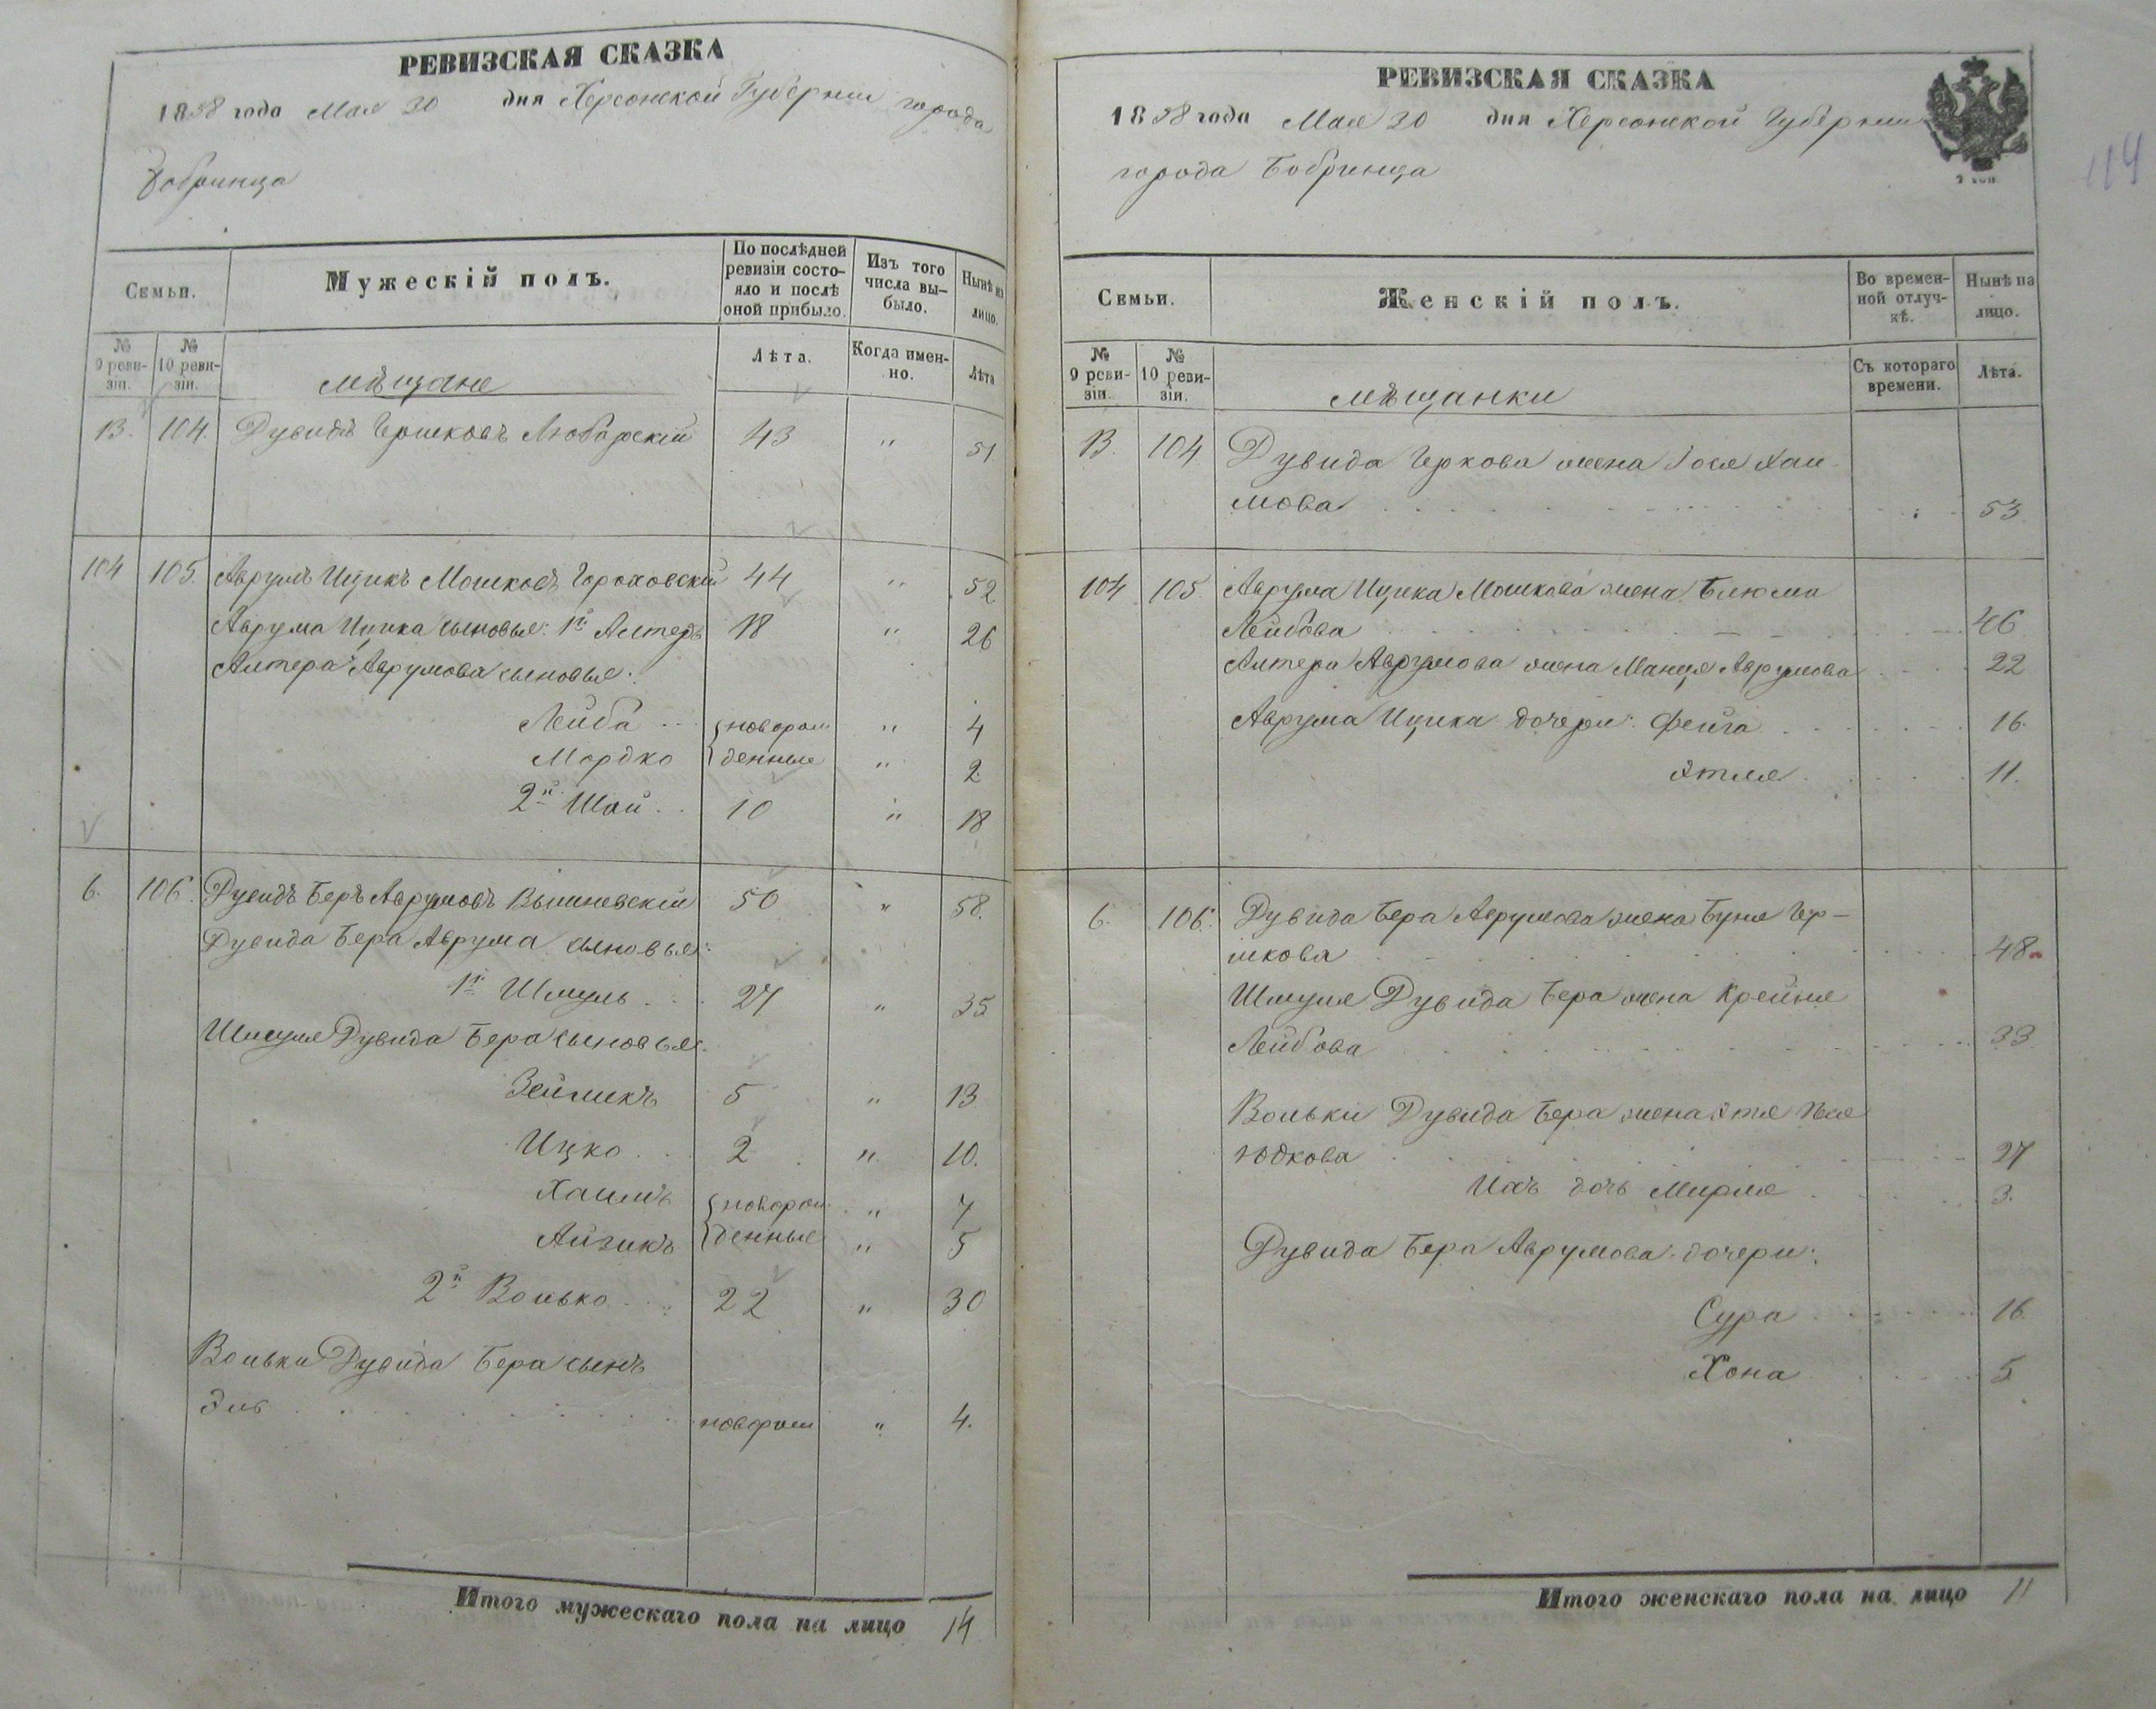 РЕВИЗСКАЯ СКАЗКА
1858 года Мая 20 дня Херсонской Губернии города
Бобринца
Семьи.
Мужескій полъ.
По послѣдней ревизіи состояло и послѣ оной прибыло.
Изъ того числа выбыло.
Нынѣ на лицо.
№ 9 ревизіи.
№ 10 ревизіи.
мѣщане
Лѣта.
Когда именно.
Лѣта
13. 104. Дувидъ Гершковъ Любарскій 43 " 51.
104 105. Аврумъ Ицикъ Мошковъ Гороховскій 44 " 52
Аврума Ицика сыновья: 1й Алтеръ 18 " 26
Алтера Аврумова сыновья:
Лейба новорож " 4
Мордко денные " 2.
2й Шай 10 " 18
6. 106. Дувидъ Беръ Аврумовъ Вышневскій 50 " 58.
Дувида Бера Аврума сыновья:
1й Шмуль 27 " 35
Шмуля Дувида Бера сыновья:
Зейликъ 5 " 13
Ицко 2 " 10.
Хаимъ новорож " 7
Айзикъ денные " 5
2й Волько 22 " 30
Вольки Дувида Бера сынъ
новорож " 4.
Итого мужескаго пола на лицо 14
РЕВИЗСКАЯ СКАЗКА
1858 года Мая 20 дня Херсонской Губернии
города Бобринца
114
Семьи.
Женскій полъ.
Во временной отлучкѣ.
Нынѣ на лицо.
№ 9 ревизіи.
№ 10 ревизіи.
мѣщанки
Съ котораго времени.
Лѣта.
13. 104 Дувида Геркова жена Хаи
мова 53
104 105. Аврума Ицика Мошкова жена Блюма
Лейбова 46
Алтера Аврумова жена Маня Аврумова 22
Аврума Ицика дочери: Фейга 16.
Этля 11.
6. 106. Дувида Бера Аврумова жена Буня Гер-
шкова 48
Шмуля Дувида Бера жена Крейня
Лейбова 33
Вольки Дувида Бера жена
Юдкова 27
Ихъ дочь Мирля 3.
Дувида Бера Аврумова дочери:
Сура 16
Хона 5
Итого женскаго пола на лицо 11